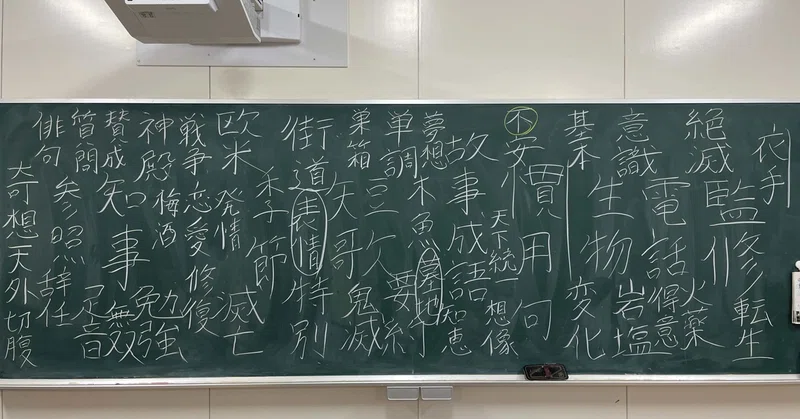 衣手
修
転生
絶滅
監
火薬
意識
電話
得意
岩塩
基本
生物
変化
不安
慣用句
天下統一
想像
故事成語
知恵
夢想
木魚
墓地
単調
三欠
要約
巣箱
矢
歌
鬼滅
街道
表情
特別
季節
欧米
発情
滅亡
戦争
恋愛
修復
神殿
梅酒
勉強
賛成
知事
無双
簡
足音
俳句
参照
辞任
奇想天外
切腹